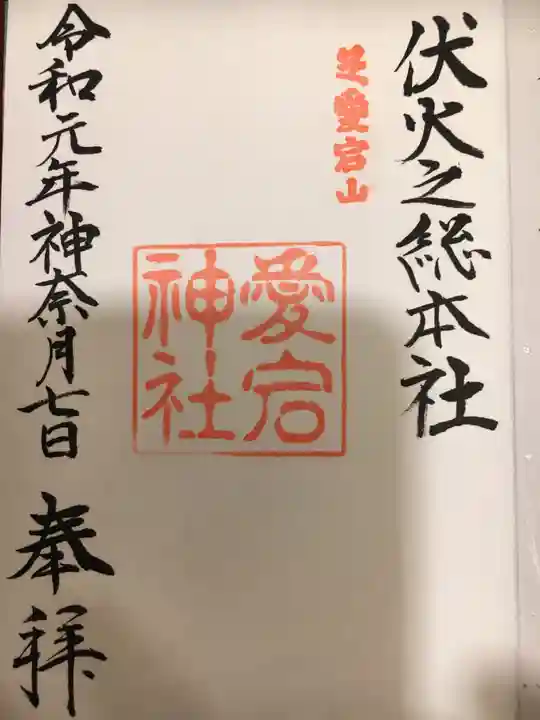 伏火之総本社
芝愛宕山
愛宕
神社
令和元年神奈月七日
奉拝